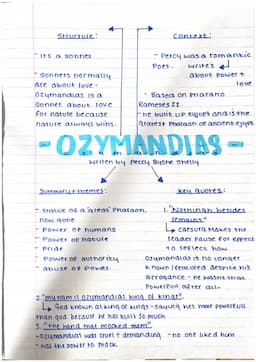 Structure:
- It's a sonnet
- Sonnets normally
are about love -
Ozymandias is a
sonnet about love
for nature because
nature always wins.
Context:
- Percy was a romantic
Poet. writes
about Power +
love
- Based on Pharaho
Rameses II.
- he built up egypt and is the
greatest Pharaoh of ancient egypt
- OZYMANDIAS -
Written by Percy Byshe Shelly
Summary + themes:
- Statue of a 'great' Pharaoh,
now gone
- Power of humans
- Power of nature
- Pride
- Power of authority
- abuse of Power.
Key quotes:
1. "Nothingh besides
remains"
Caesura makes the
reader pause for effect
to reflect how
Ozymandias is no longer
known/remembered despite his
arrogance - he wasn't that
Powerful after all -
2. "my nam is Ozymandias king of kings".
God known as king of kings - saying he's more powerfull
than god because he has built so much
3. "the hand that mocked them"
- Ozymandias was cruel + demanding - no one liked him
- has the power to mock